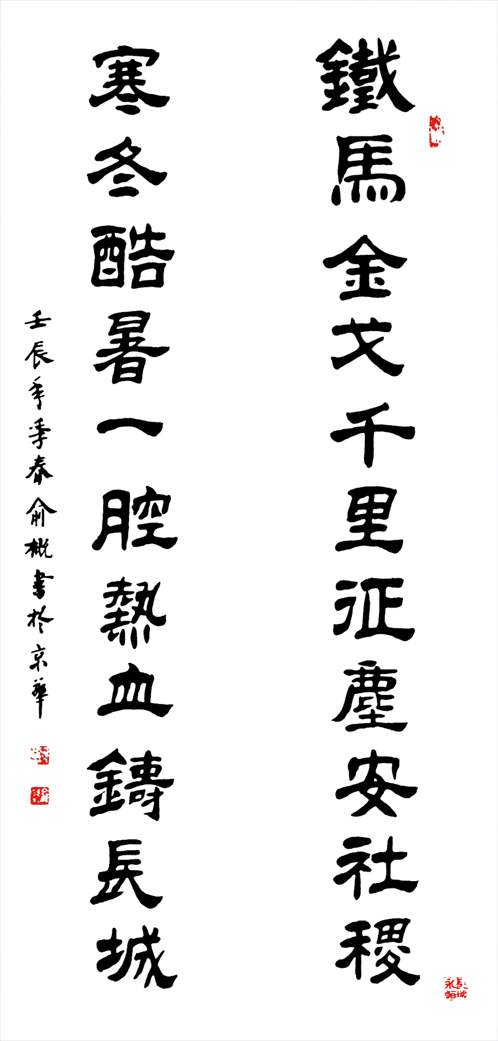 鐵馬金戈千里征塵安社稷
寒冬酷暑一腔熱血鑄長城
壬辰年季春俞概書於京華